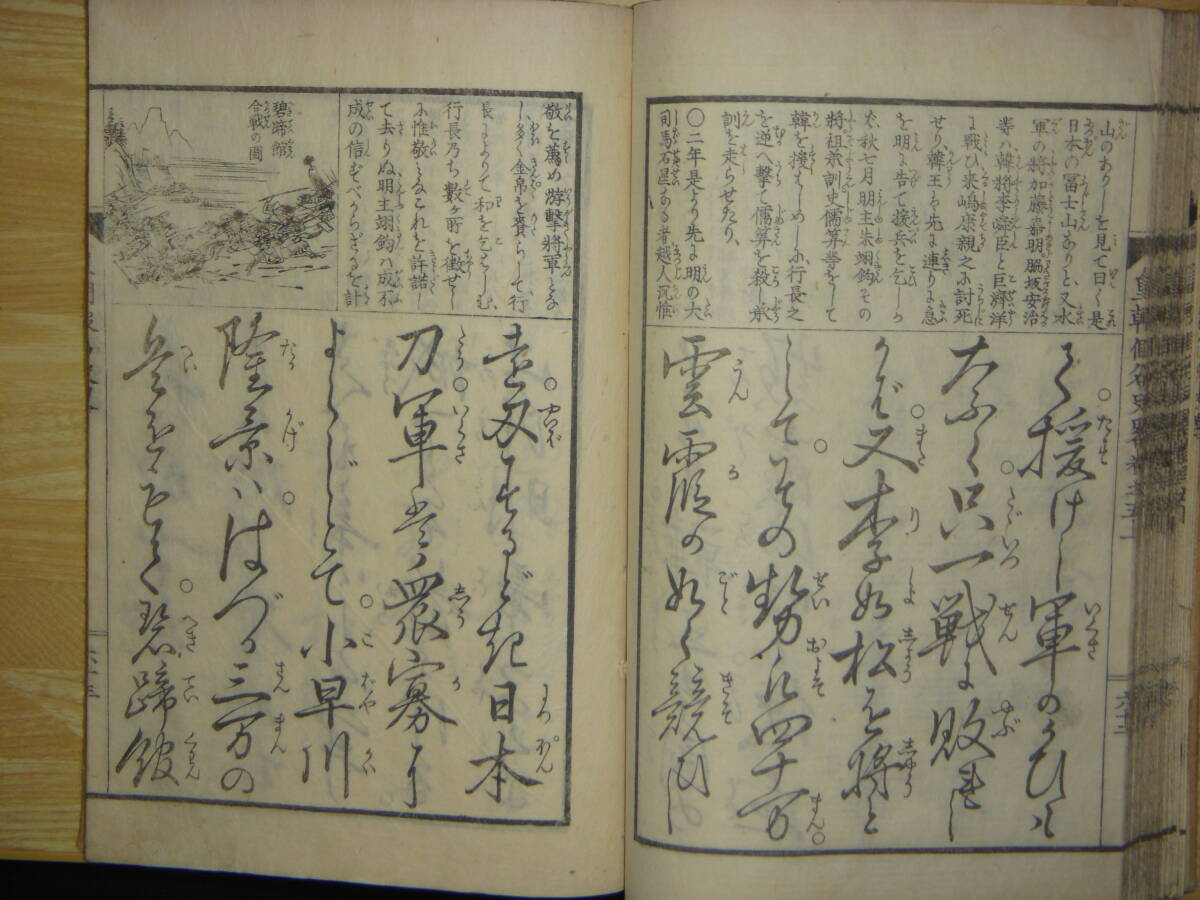 山のありしを見て曰く是
日本の冨士山ありと又水
軍の將加藤嘉明脇坂安治
等ハ韓將李舜臣と巨濟洋
に戰ひ来嶋康親之ニ討死
せり、韓王る先に連りに急
を明に告て援兵を乞しか
バ、秋七月明主朱翊鈞その
將祖承訓史儒算等をして
韓を援はしめしに行長之
を逆へ擊て儒算を殺し承
訓を走らせたり、
〇二年是より先に明の大
司馬石星なる者越人沉惟
て援けし軍のかひハ
なふく只一戦に敗れし
かバ又李如松を將と
してその勢凡四十万
雲霞の如く競ひし
敬を薦め游擊將軍となし
し多く金帛を賷らして行
長によりて和を乞ハしむ、
行長乃ち數ヶ所を徴せし
に惟敬みなこれを許諾し
て去りぬ明主翊鈞ハ成不
成の信ずべからざるを計
碧蹄館
合戰の圖
壱刄するどき日本
刀軍ハ衆寡に
よらじとて小早川
隆景ハはづか三万の
兵をもて碧蹄館